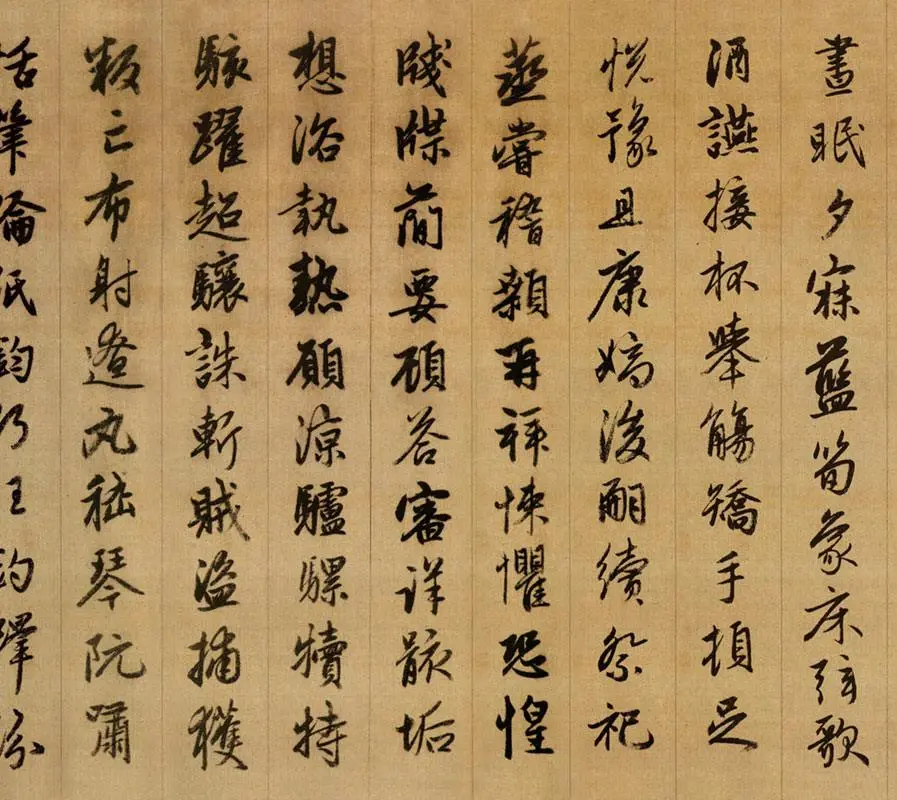 晝眠夕寐藍筍象床弦歌
酒讌接杯舉觴矯手頓足
悅豫且康嫡後嗣續祭祀
蒸嘗稽顙再拜悚懼恐惶
牋牒簡要顧答審詳骸垢
想浴執熱願涼驢騾犢特
駭躍超驤誅斬賊盜捕獲
叛亡布射遼丸嵇琴阮嘯
恬筆倫紙鈞巧任釣釋紛